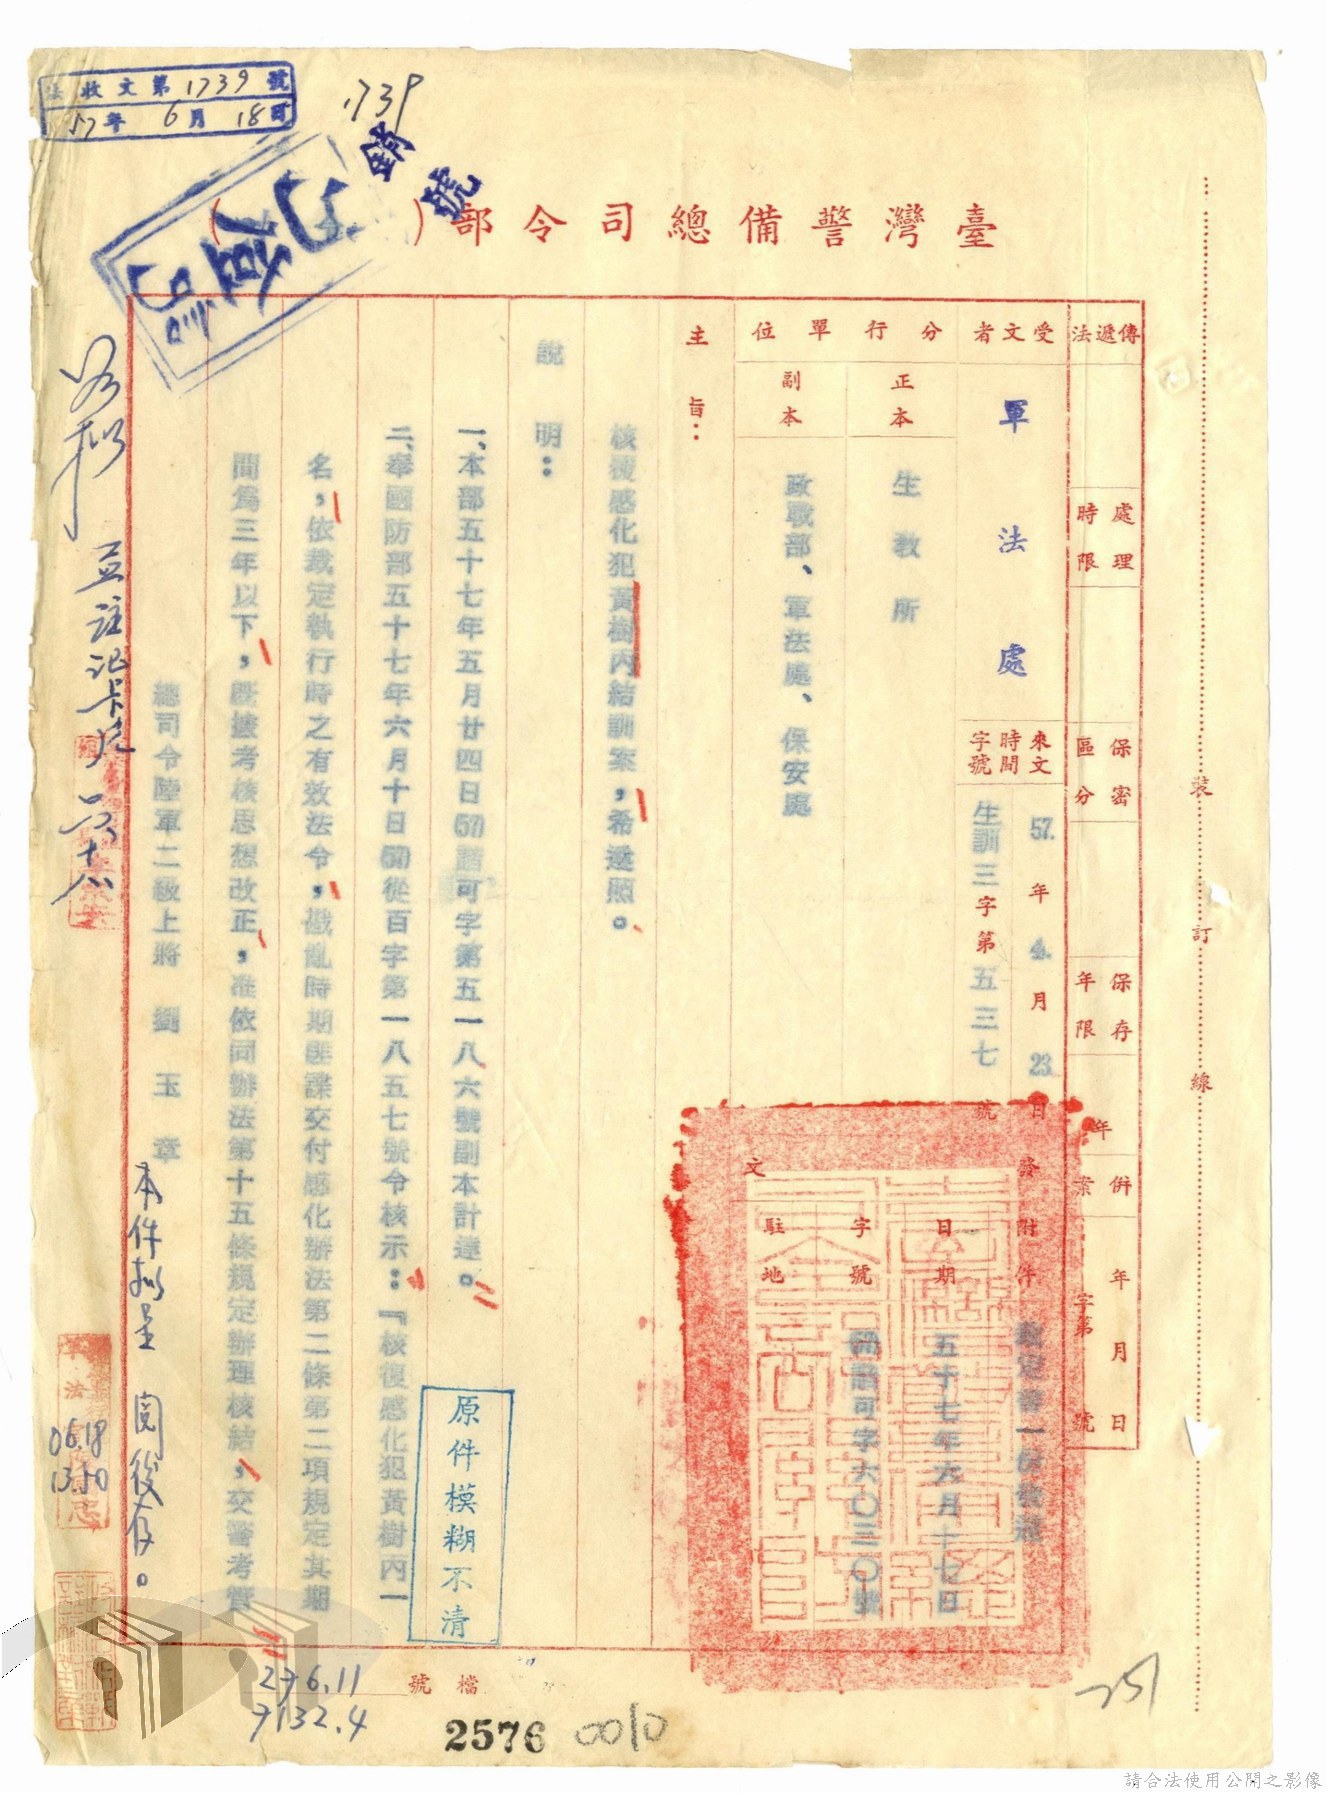 法收文第1739號
57年6月18日
1739
銷號
臺灣警備總司令部（
）
傳遞法
處理時限
保密區分
保存年限
年
併
案
年月日
字第
號
受文者
軍法處
來文時間字號
57.年4.月23日
生訓三字第五三七號
分行單位
正本
生教所
副本
政戰部、軍法處、保安處
發文
附件
日期
五十七年六月十七日
字號
駐地
主旨：
核復感化犯黃樹丙結訓案，希遵照。
說明：
一、本部五十七年五月廿四日(57)諧可字第五一八六號副本計達。
二、奉國防部五十七年六月十日(57)從百字第一八五七號令核示：「核復感化犯黃樹丙一
名，依裁定執行時之有效法令，戡亂時期匪諜交付感化辦法第二條第二項規定其期
間為三年以下，既據考核思想改正，准依同辦法第十五條規定辦理核結，交警考管
總司令陸軍二級上將 劉玉章
本件擬呈 閱後存。
06.18
13.50
原件模糊不清
檔號
276.11
7132.4
2576
0010
251
裝訂線
請合法使用公開之影像